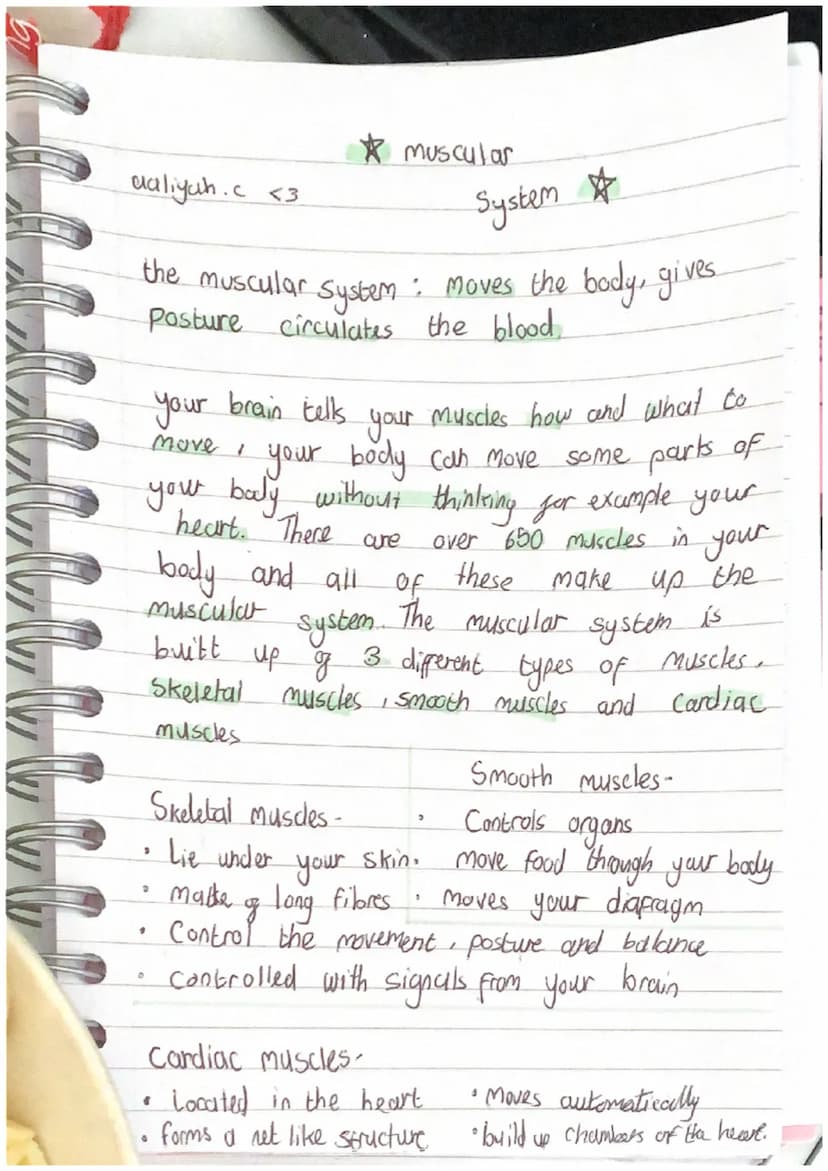 ☆ muscular
aaliyah.c <3
System ☆
the muscular system : moves the body, gives
posture circulates the blood.
your brain tells your muscles how and what to
move, your body can move some parts of
your body without thinking for example your
heart. There are over 650 muscles in your
body and all of these make up the
muscular system. The muscular system is
built up of 3 different types of muscles.
Skeletal muscles, smooth muscles and cardiac
muscles
Skeletal muscles -
• Lie under your skin.
• made of long fibres
• Control the movement, posture and balance
• controlled with signals from your brain
Smooth muscles -
• Controls organs
move food through your body
• moves your diafragm
Cardiac muscles -
• Located in the heart
• forms a net like structure
• Moves automatically
• build up chambers of the heart.